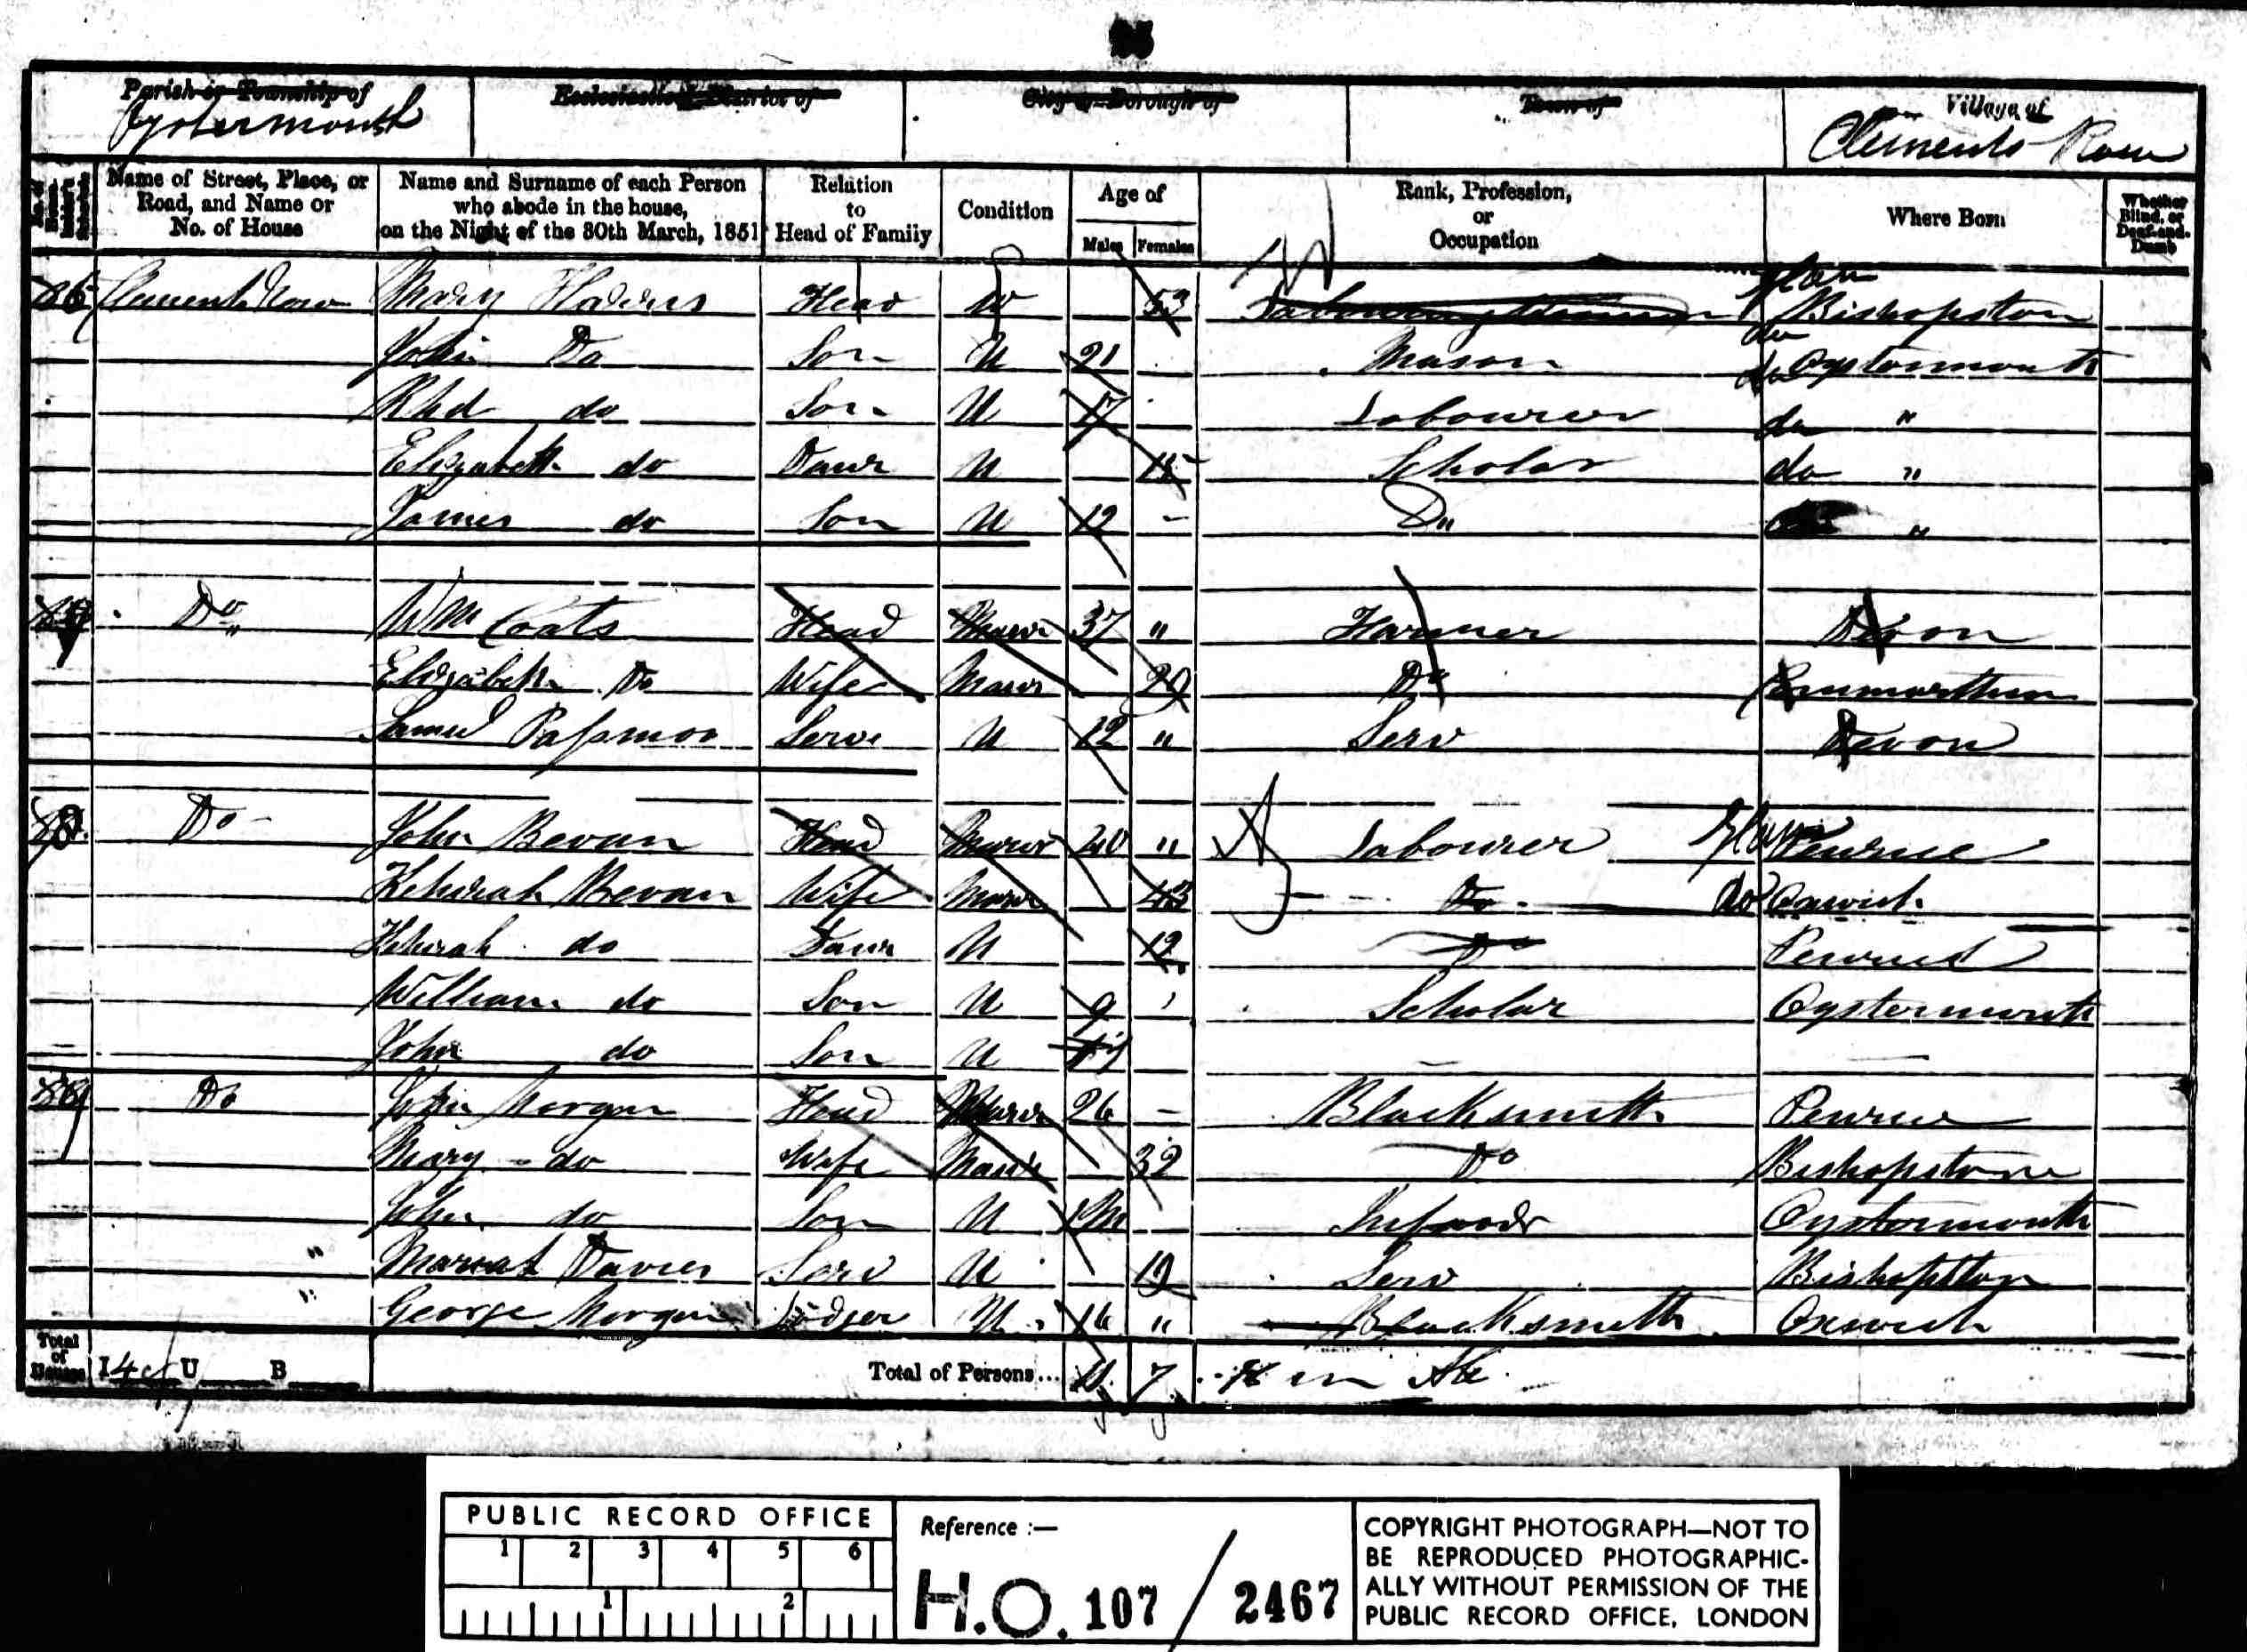 Parish or Township of
Oystermouth
Ecclesiastical District of
City or Borough of
Town of
Village of
Clements Row
Name of Street, Place, or Road, and Name or No. of House
Name and Surname of each Person who abode in the house, on the Night of the 30th March, 1851
Relation to Head of Family
Condition
Age of
Males Females
Rank, Profession, or Occupation
Where Born
Whether Blind, or Deaf-and-Dumb
86 Clements Row Mary Harris Head W 53 Glam Bishopston
John Do Son U 21 Mason do Oystermouth
Rhd do Son U 17 Labourer do "
Elizabeth do Daur U 15 Scholar do "
James do Son U 12 – Do "
Do Wm Coats Head Marr 37 " Farmer Devon
Elizabeth Do Wife Marr 29 Do
Samuel Serv U 12 " Serv Devon
Do John Bevan Head Marr 40 " Labourer Glam
Bevan Wife Marr 43 Do do
do Daur U 12 Do
William do Son U 9 Scholar Oystermouth
John do Son U
Do John Morgan Head Marr 26 – Blacksmith
Mary do Wife Marr 32 Do Bishopstone
John do Son U Oystermouth
" Davies Serv U 19 Serv Bishopston
" George Morgan Lodger U 16 " Blacksmith Oxwich
Total of Houses I 4 U B Total of Persons... 11 7
PUBLIC RECORD OFFICE
1 2 3 4 5 6
1 2
Reference :—
H.O. 107 / 2467
COPYRIGHT PHOTOGRAPH—NOT TO
BE REPRODUCED PHOTOGRAPHIC-
ALLY WITHOUT PERMISSION OF THE
PUBLIC RECORD OFFICE, LONDON